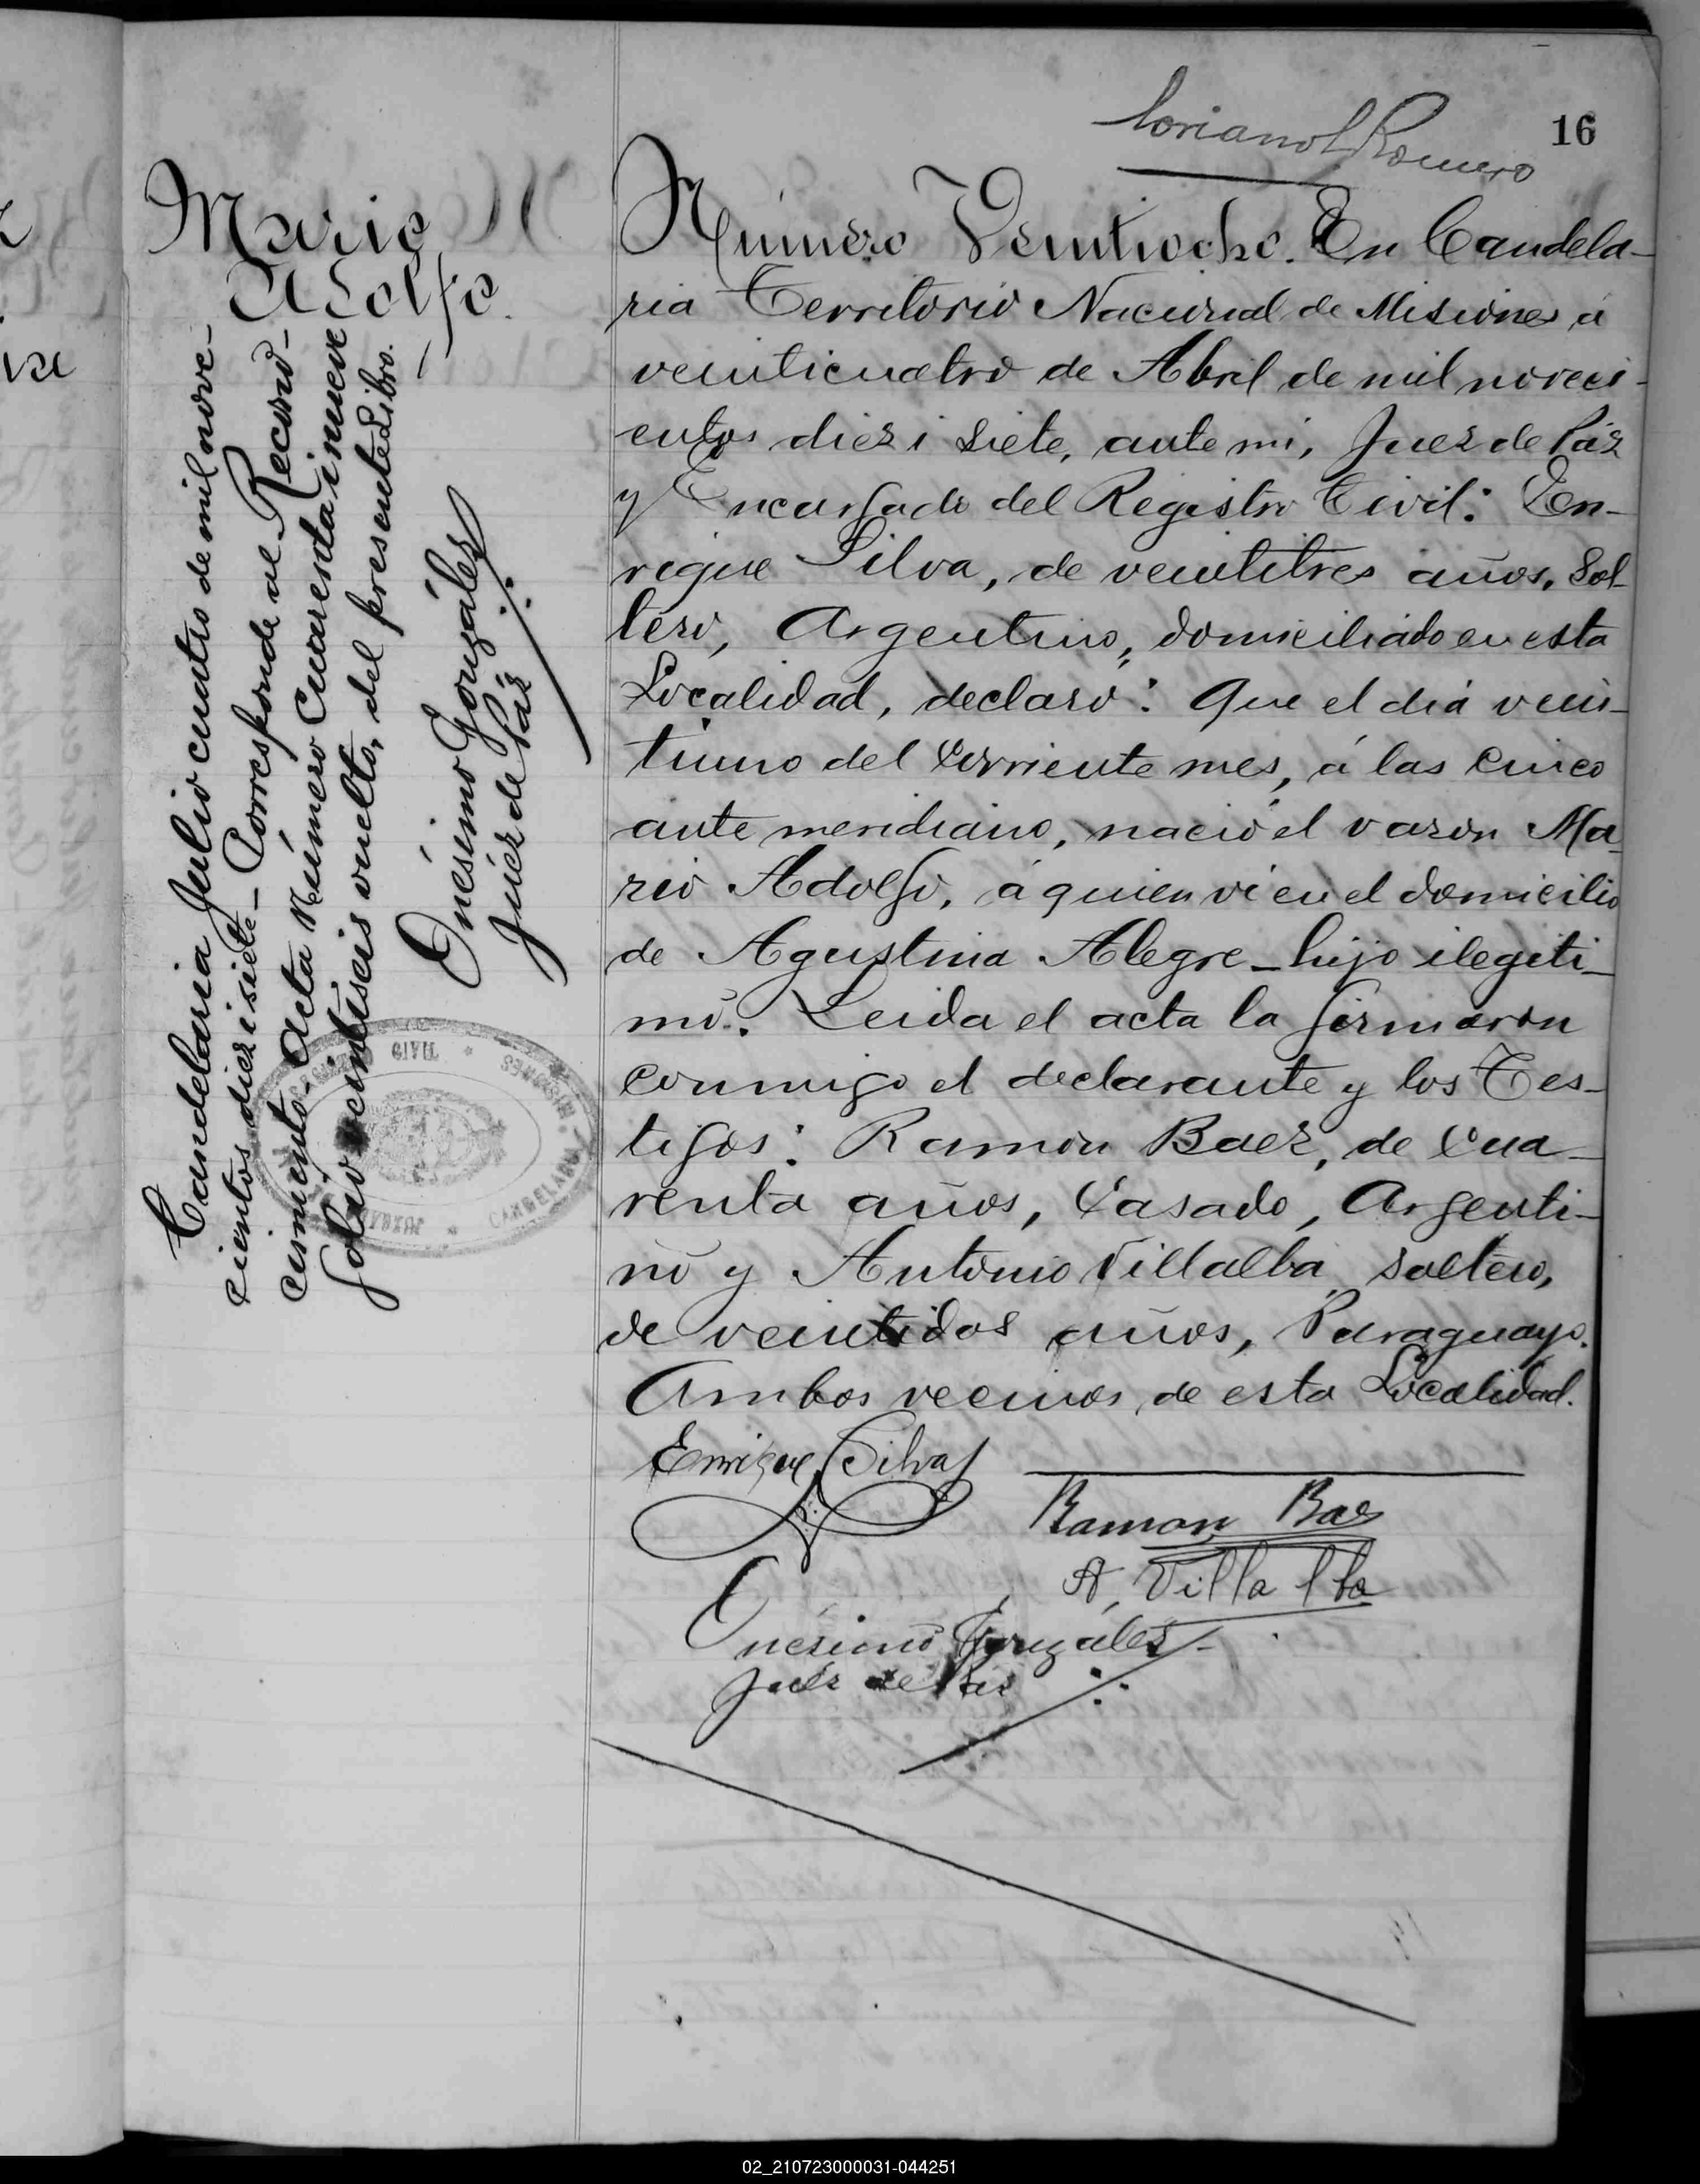 16
Mario
Adolfo.
Candelaria Julio cuatro de mil nove-
cientos diez i siete_ Corresponde al Recono-
cimiento. Acta Número Cuarenta i nueve
folio veintiseis vuelto, del presente Libro.
Onésimo Gonzáles
Juez de Páz
CIVIL * MISIONES
CANDELARIA * JUZGADO
Número Veintiocho. En Candela-
ria Territorio Nacional de Misiones á
veinticuatro de Abril de mil noveci-
entos diez i siete, ante mi, Juez de Páz
y Encargado del Registro Civil: En-
rique Silva, de veintitres años, Sol-
tero, Argentino, domiciliado en esta
Localidad, declaró: Que el día vein-
tiuno del corriente mes, á las cinco
ante meridiano, nació el varon Ma-
rio Adolfo, á quien ví en el domicilio
de Agustina Alegre_hijo ilegiti-
mo. Leida el acta la firmaron
conmigo el declarante y los Tes-
tigos: Ramón Baez, de cua-
renta años, Casado, Argenti-
no y Antonio Villalba, soltero,
de veintidos años, Paraguayo.
Ambos vecinos de esta Localidad.
Enrique Silva
Ramon Baes
A. Villalba
Onésimo Gonzáles
Juéz de Páz
02_210723000031-044251